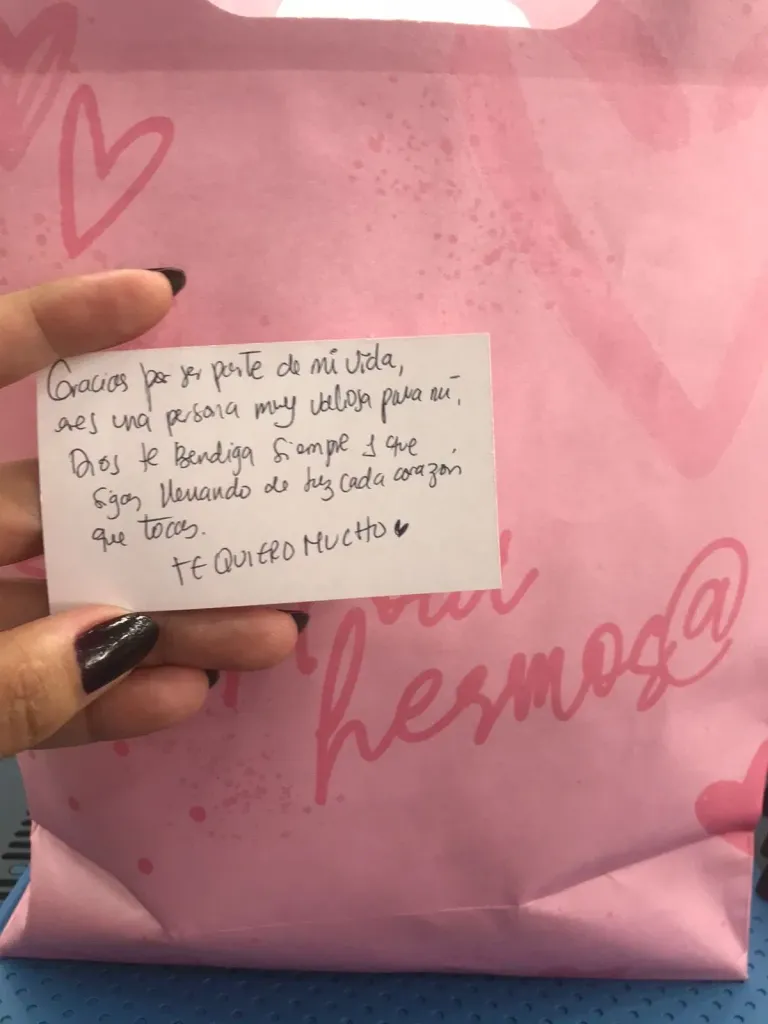 Gracias por ser parte de mi vida,
eres una persona muy valiosa para mí,
Dios te Bendiga siempre y que
sigas llenando de luz cada corazón
que tocas.
TE QUIERO MUCHO
hermos@